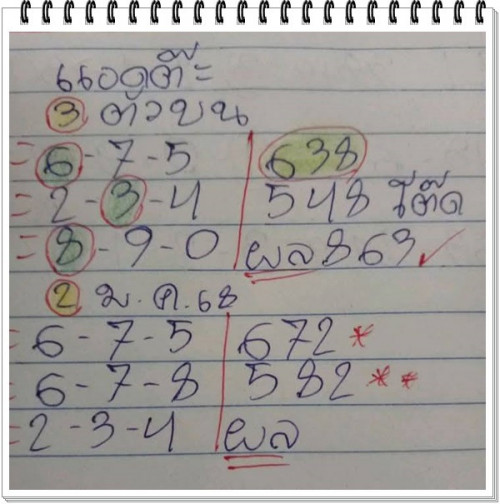 แอดต๊ะ
3 ตัวบน
= 6-7-5 638
= 2-3-4 548 รีต๊ด
= 8-9-0 ผล 863 ✓
2 ม.ค.68
= 6-7-5 672 *
= 6-7-8 582 **
= 2-3-4 ผล